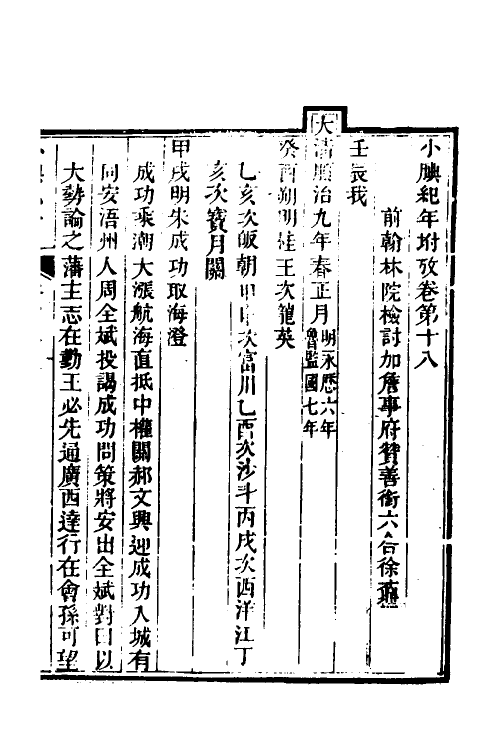 小腆紀年附攷卷第十八
前翰林院檢討加詹事府贊善銜六合徐鼒
壬辰我
大清順治九年春正月明永歷六年魯監國七年
癸酉朔明桂王次龍英
乙亥次皈朝甲申次富川乙酉次沙斗丙戌次西洋江丁
亥次寶月關
甲戌明朱成功取海澄
成功乘潮大漲航海直抵中權關郝文興迎成功入城有
同安浯州人周全斌投謁成功問策將安出全斌對曰以
大勢論之藩主志在勤王必先通廣西達行在會孫可望